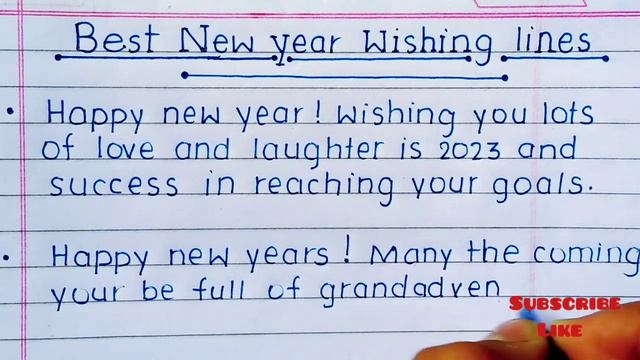 Best New year Wishing lines
• Happy new year! Wishing you lots
of love and laughter is 2023 and
success in reaching your goals.
• Happy new years! Many the coming
your be full of grandadven
Subscribe
Like